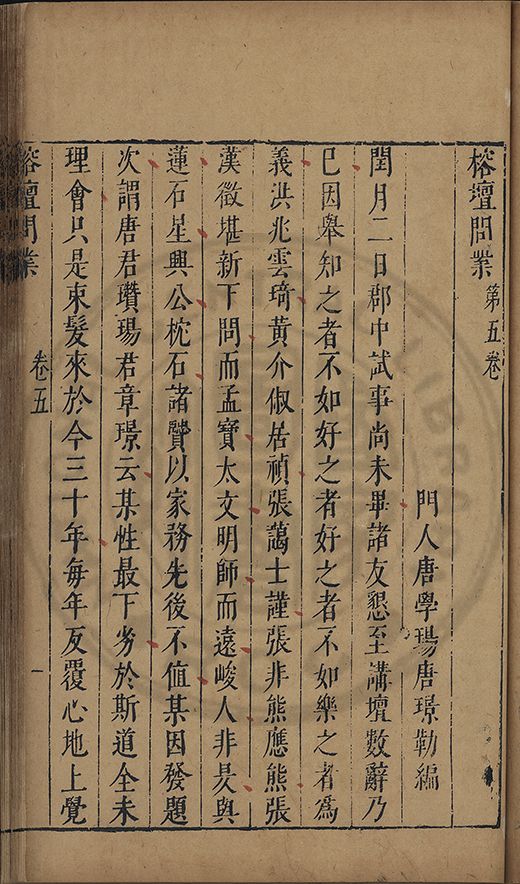 榕壇問業第五卷
門人唐學瑒唐璟勒編
閏月二日郡中試事尚未畢諸友懇至講壇數辭乃
已因舉知之者不如好之者好之者不如樂之者為
義洪兆雲琦黃介俶居禎張藹士謹張非熊應熊張
漢徵堪新下問而孟寶太文明師而遠峻人非晏與
蓮石星興公枕石諸贒以家務先後不值某因發題
次謂唐君瓚瑒君章璟云某性最下劣於斯道全未
理會只是束髮來於今三十年每年反覆心地上覺
榕壇問業
卷五
一